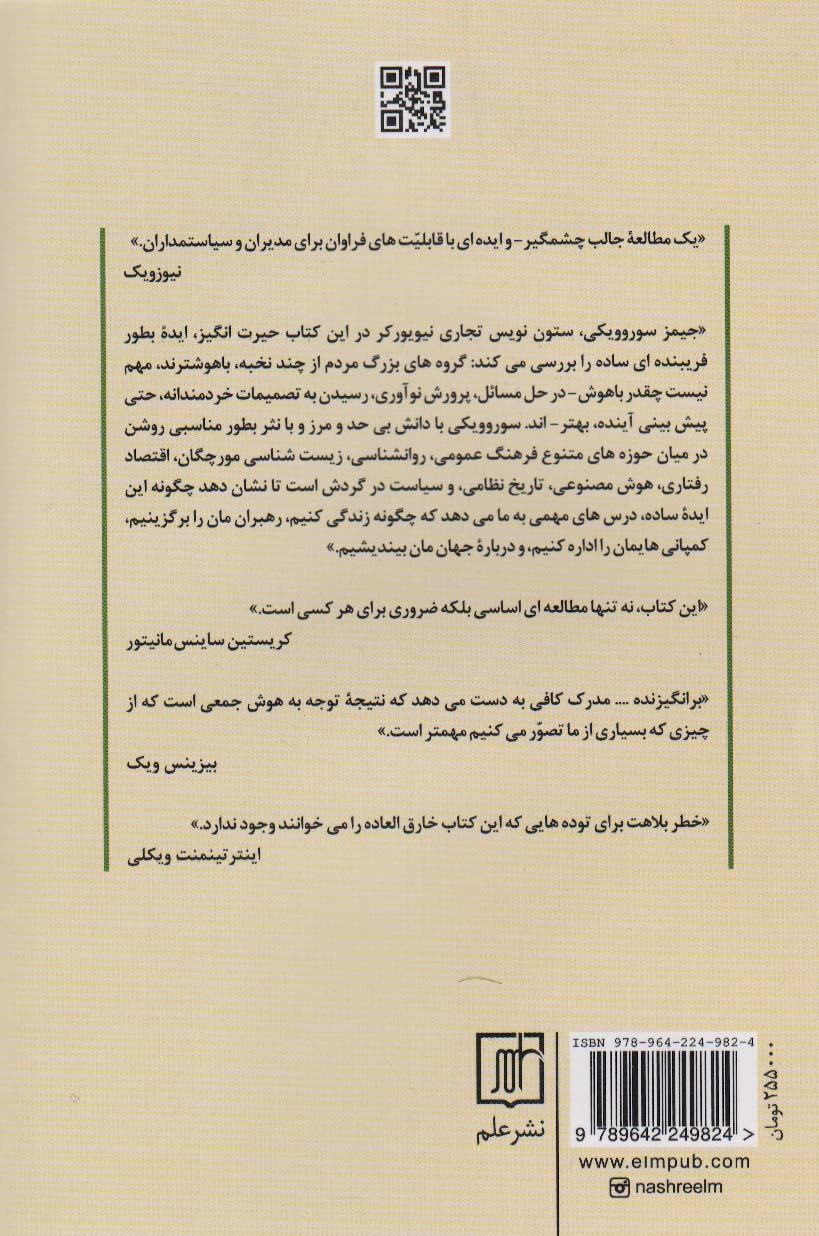 «یک مطالعهٔ جالب چشمگیر - و ایده ای با قابلیّت های فراوان برای مدیران و سیاستمداران.»
نیوزویک
«جیمز سوروویکی، ستون نویس تجاری نیویورکر در این کتاب حیرت انگیز، ایدهٔ بطور
فریبنده ای ساده را بررسی می کند: گروه های بزرگ مردم از چند نخبه، باهوشترند، مهم
نیست چقدر باهوش - در حل مسائل، پرورش نوآوری، رسیدن به تصمیمات خردمندانه، حتی
پیش بینی آینده، بهتر - اند. سوروویکی با دانش بی حد و مرز و با نثر بطور مناسبی روشن
در میان حوزه های متنوع فرهنگ عمومی، روانشناسی، زیست شناسی مورچگان، اقتصاد
رفتاری، هوش مصنوعی، تاریخ نظامی، و سیاست در گردش است تا نشان دهد چگونه این
ایدهٔ ساده، درس های مهمی به ما می دهد که چگونه زندگی کنیم، رهبران مان را برگزینیم،
کمپانی هایمان را اداره کنیم، و دربارهٔ جهان مان بیندیشیم.»
«این کتاب، نه تنها مطالعه ای اساسی بلکه ضروری برای هر کسی است.»
کریستین ساینس مانیتور
«برانگیزنده .... مدرک کافی به دست می دهد که نتیجهٔ توجه به هوش جمعی است که از
چیزی که بسیاری از ما تصوّر می کنیم مهمتر است.»
بیزینس ویک
«خطر بلاهت برای توده هایی که این کتاب خارق العاده را می خوانند وجود ندارد.»
اینترتینمنت ویکلی
ISBN 978-964-224-982-4
9 789642 249824 >
۲۵۵۰۰۰ تومان
نشر علم
www.elmpub.com
nashreelm